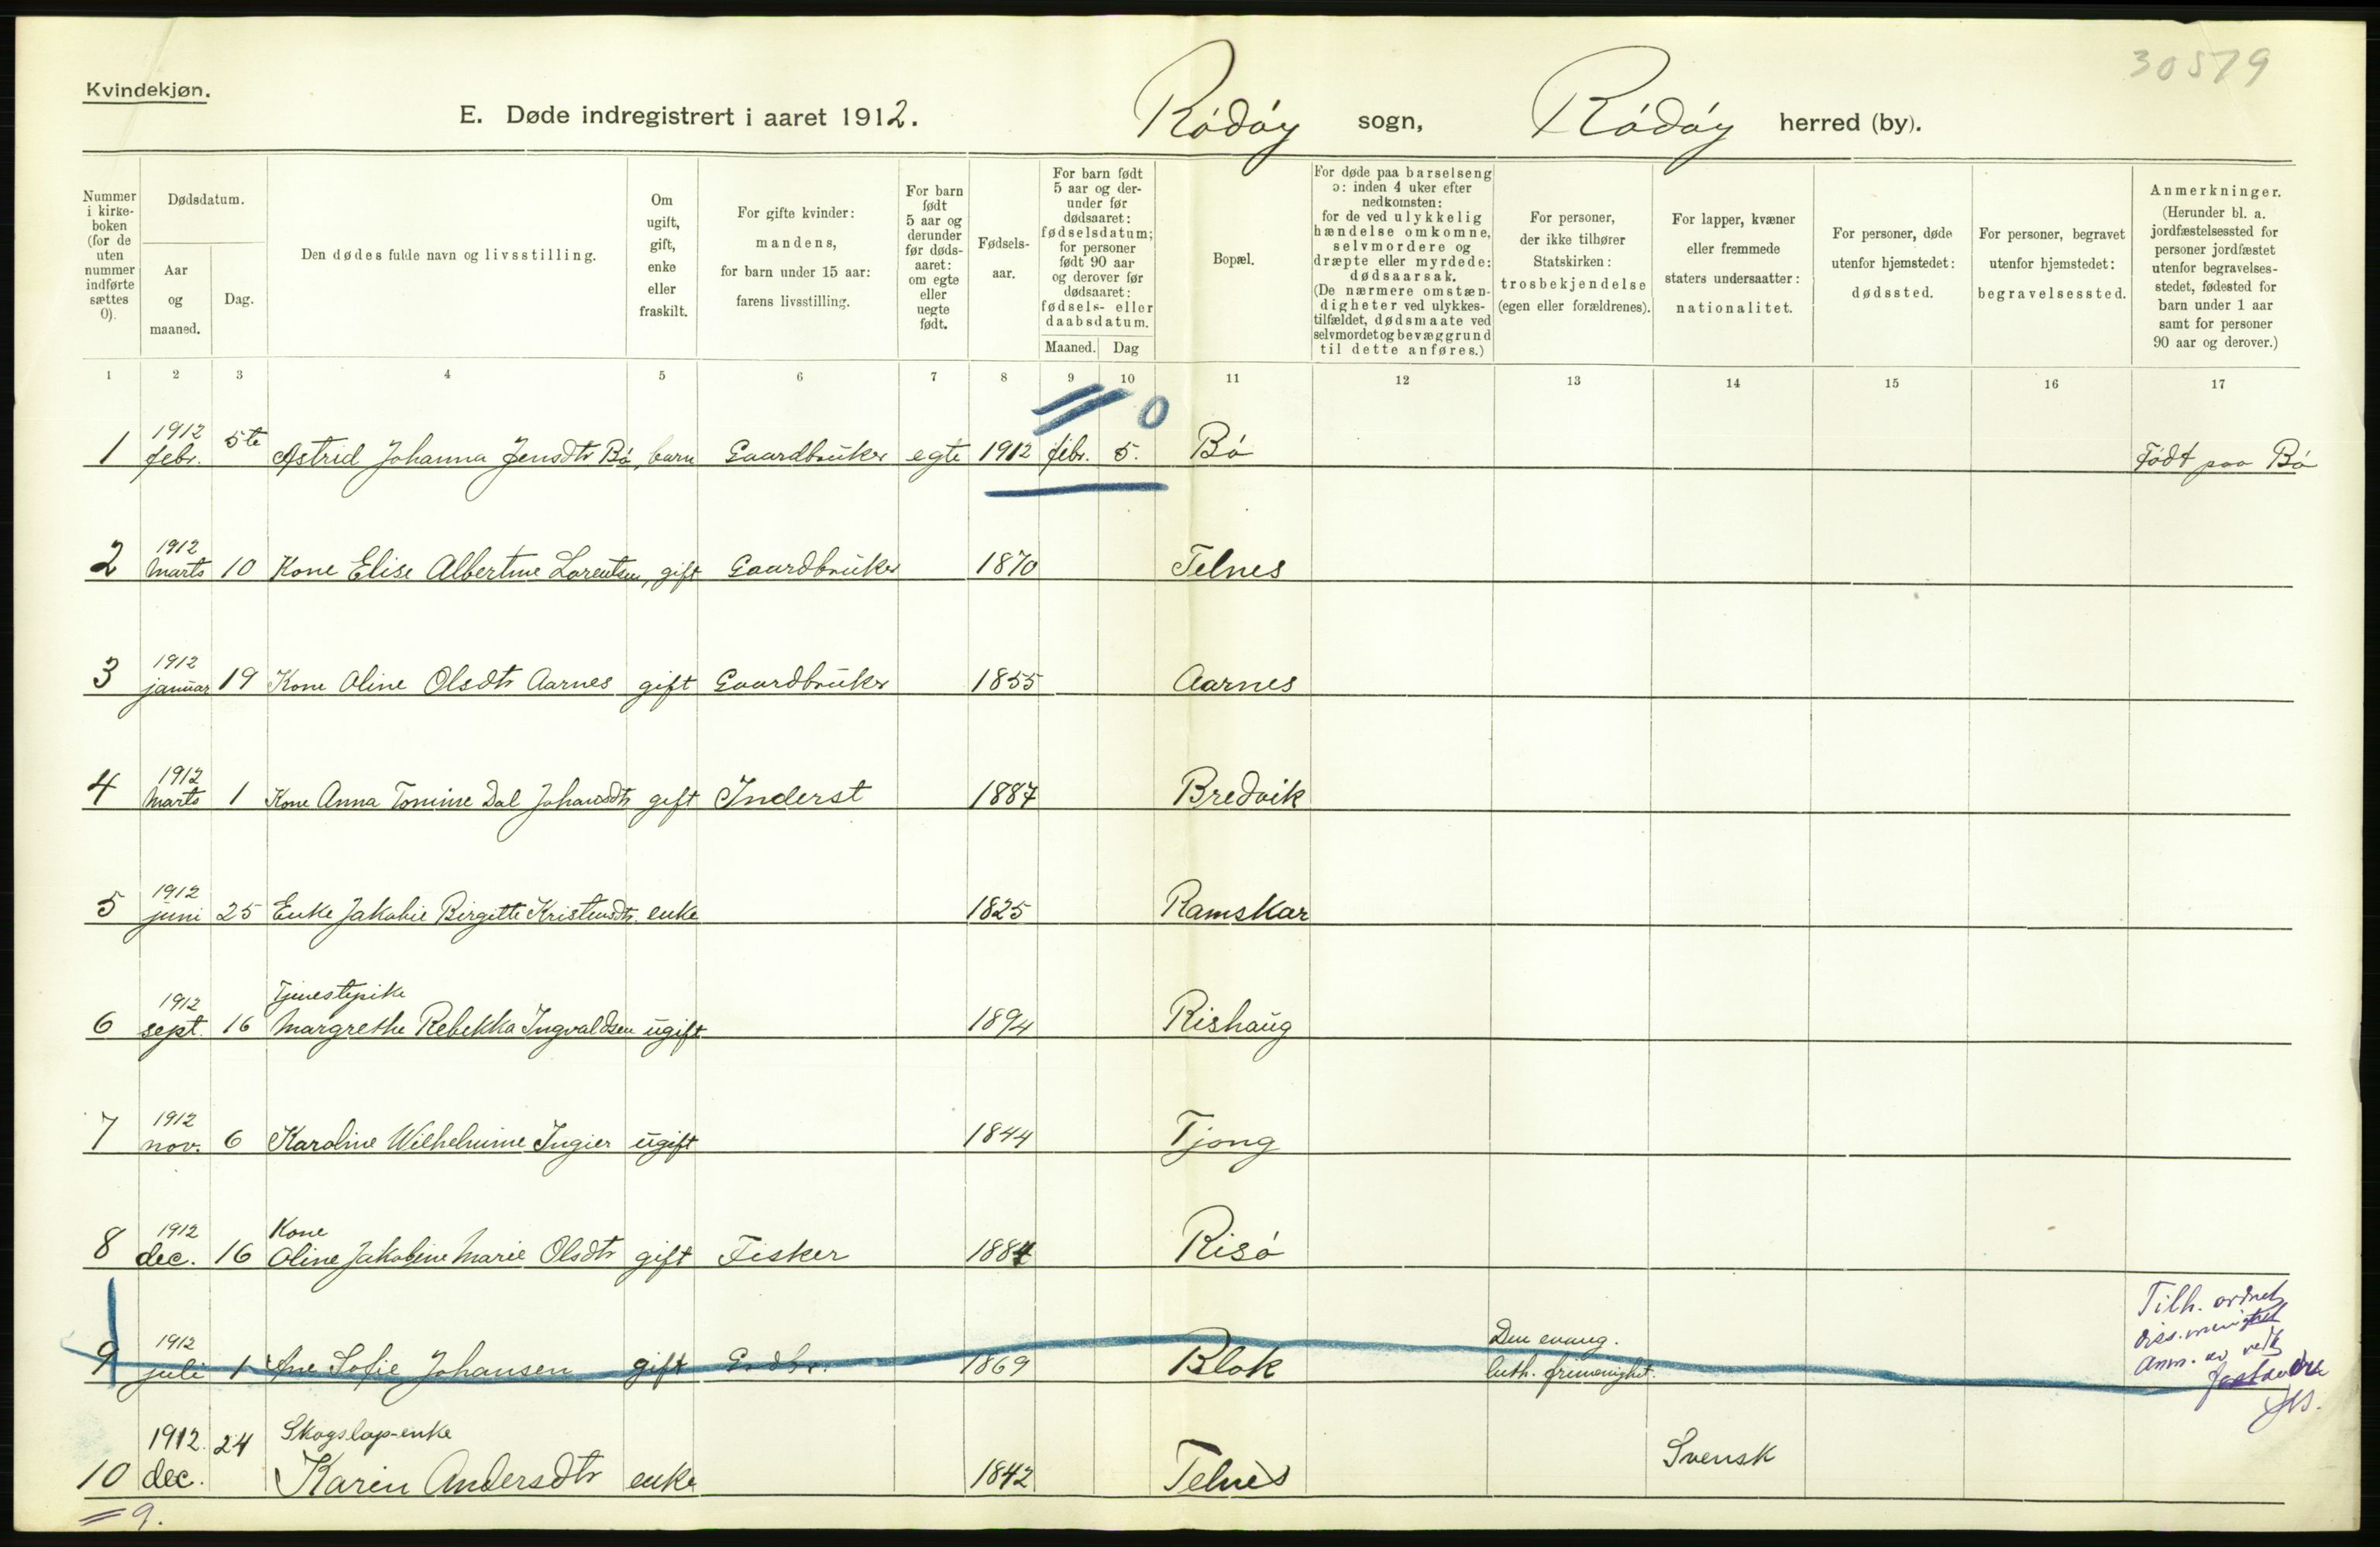 30579
Kvindekjøn.
E. Døde indregistrert i aaret 1912. Rödöy sogn, Rödöy herred (by).
Nummer i kirke- boken (for de uten nummer indførte sættes 0).
Dødsdatum.
Aar og maaned.
Dag.
Den dødes fulde navn og livsstilling.
Om ugift, gift, enke eller fraskilt.
For gifte kvinder: mandens, for barn under 15 aar: farens livsstilling.
For barn født 5 aar og derunder før døds- aaret: om egte eller uegte født.
Fødsels- aar.
For barn født 5 aar og der- under før dødsaaret: fødselsdatum; for personer født 90 aar og derover før dødsaaret: fødsels- eller daabsdatum.
Maaned. Dag
Bopæl.
For døde paa barselseng ɔ: inden 4 uker efter nedkomsten: for de ved ulykkelig hændelse omkomne, selvmordere og dræpte eller myrdede: dødsaarsak. (De nærmere omstæn- digheter ved ulykkes- tilfældet, dødsmaate ved selvmordet og bevæggrund til dette anføres.)
For personer, der ikke tilhører Statskirken: trosbekjendelse (egen eller forældrenes).
For lapper, kvæner eller fremmede staters undersaatter: nationalitet.
For personer, døde utenfor hjemstedet: dødssted.
For personer, begravet utenfor hjemstedet: begravelsessted.
Anmerkninger. (Herunder bl. a. jordfæstelsessted for personer jordfæstet utenfor begravelses- stedet, fødested for barn under 1 aar samt for personer 90 aar og derover.)
1 2 3 4 5 6 7 8 9 10 11 12 13 14 15 16 17
0
1 1912 febr. 5te Astrid Johanna Jensdtr Bö, barn Gaardbruker egte 1912 febr. 5. Bö Födt paa Bö
2 1912 Marts 10 Kone Elise Albertine Lorentsen, gift Gaardbruker 1870 Telnes
3 1912 januar 19 Kone Oline Olsdtr Aarnes gift Gaardbruker 1855 Aarnes
4 1912 Marts 1 Kone Anna Tomine Dal Johansdtr gift Inderst 1887 Bredvik
5 1912 juni 25 Enke Jakobie Birgitte Kristensdtr. enke 1825 Ramskar
6 1912 sept. 16 Tjenestepike Margrethe Rebekka Ingvaldsen ugift 1894 Rishaug
7 1912 nov. 6 Karoline Wilhelmine Ingier ugift 1844 Tjong
8 1912 dec. 16 Kone Oline Jakobine Marie Olsdtr gift Fisker 1884 Risö
9 1912 juli 1 Ane Sofie Johansen gift Grdbr. 1869 Blok Den evang. luth. frimenighet. Tilh. ordnet diss. menighet Anm. av
10 1912. dec. 24 Skogslap-enke Karen Andersdtr enke 1842 Telnes Svensk
= 9.